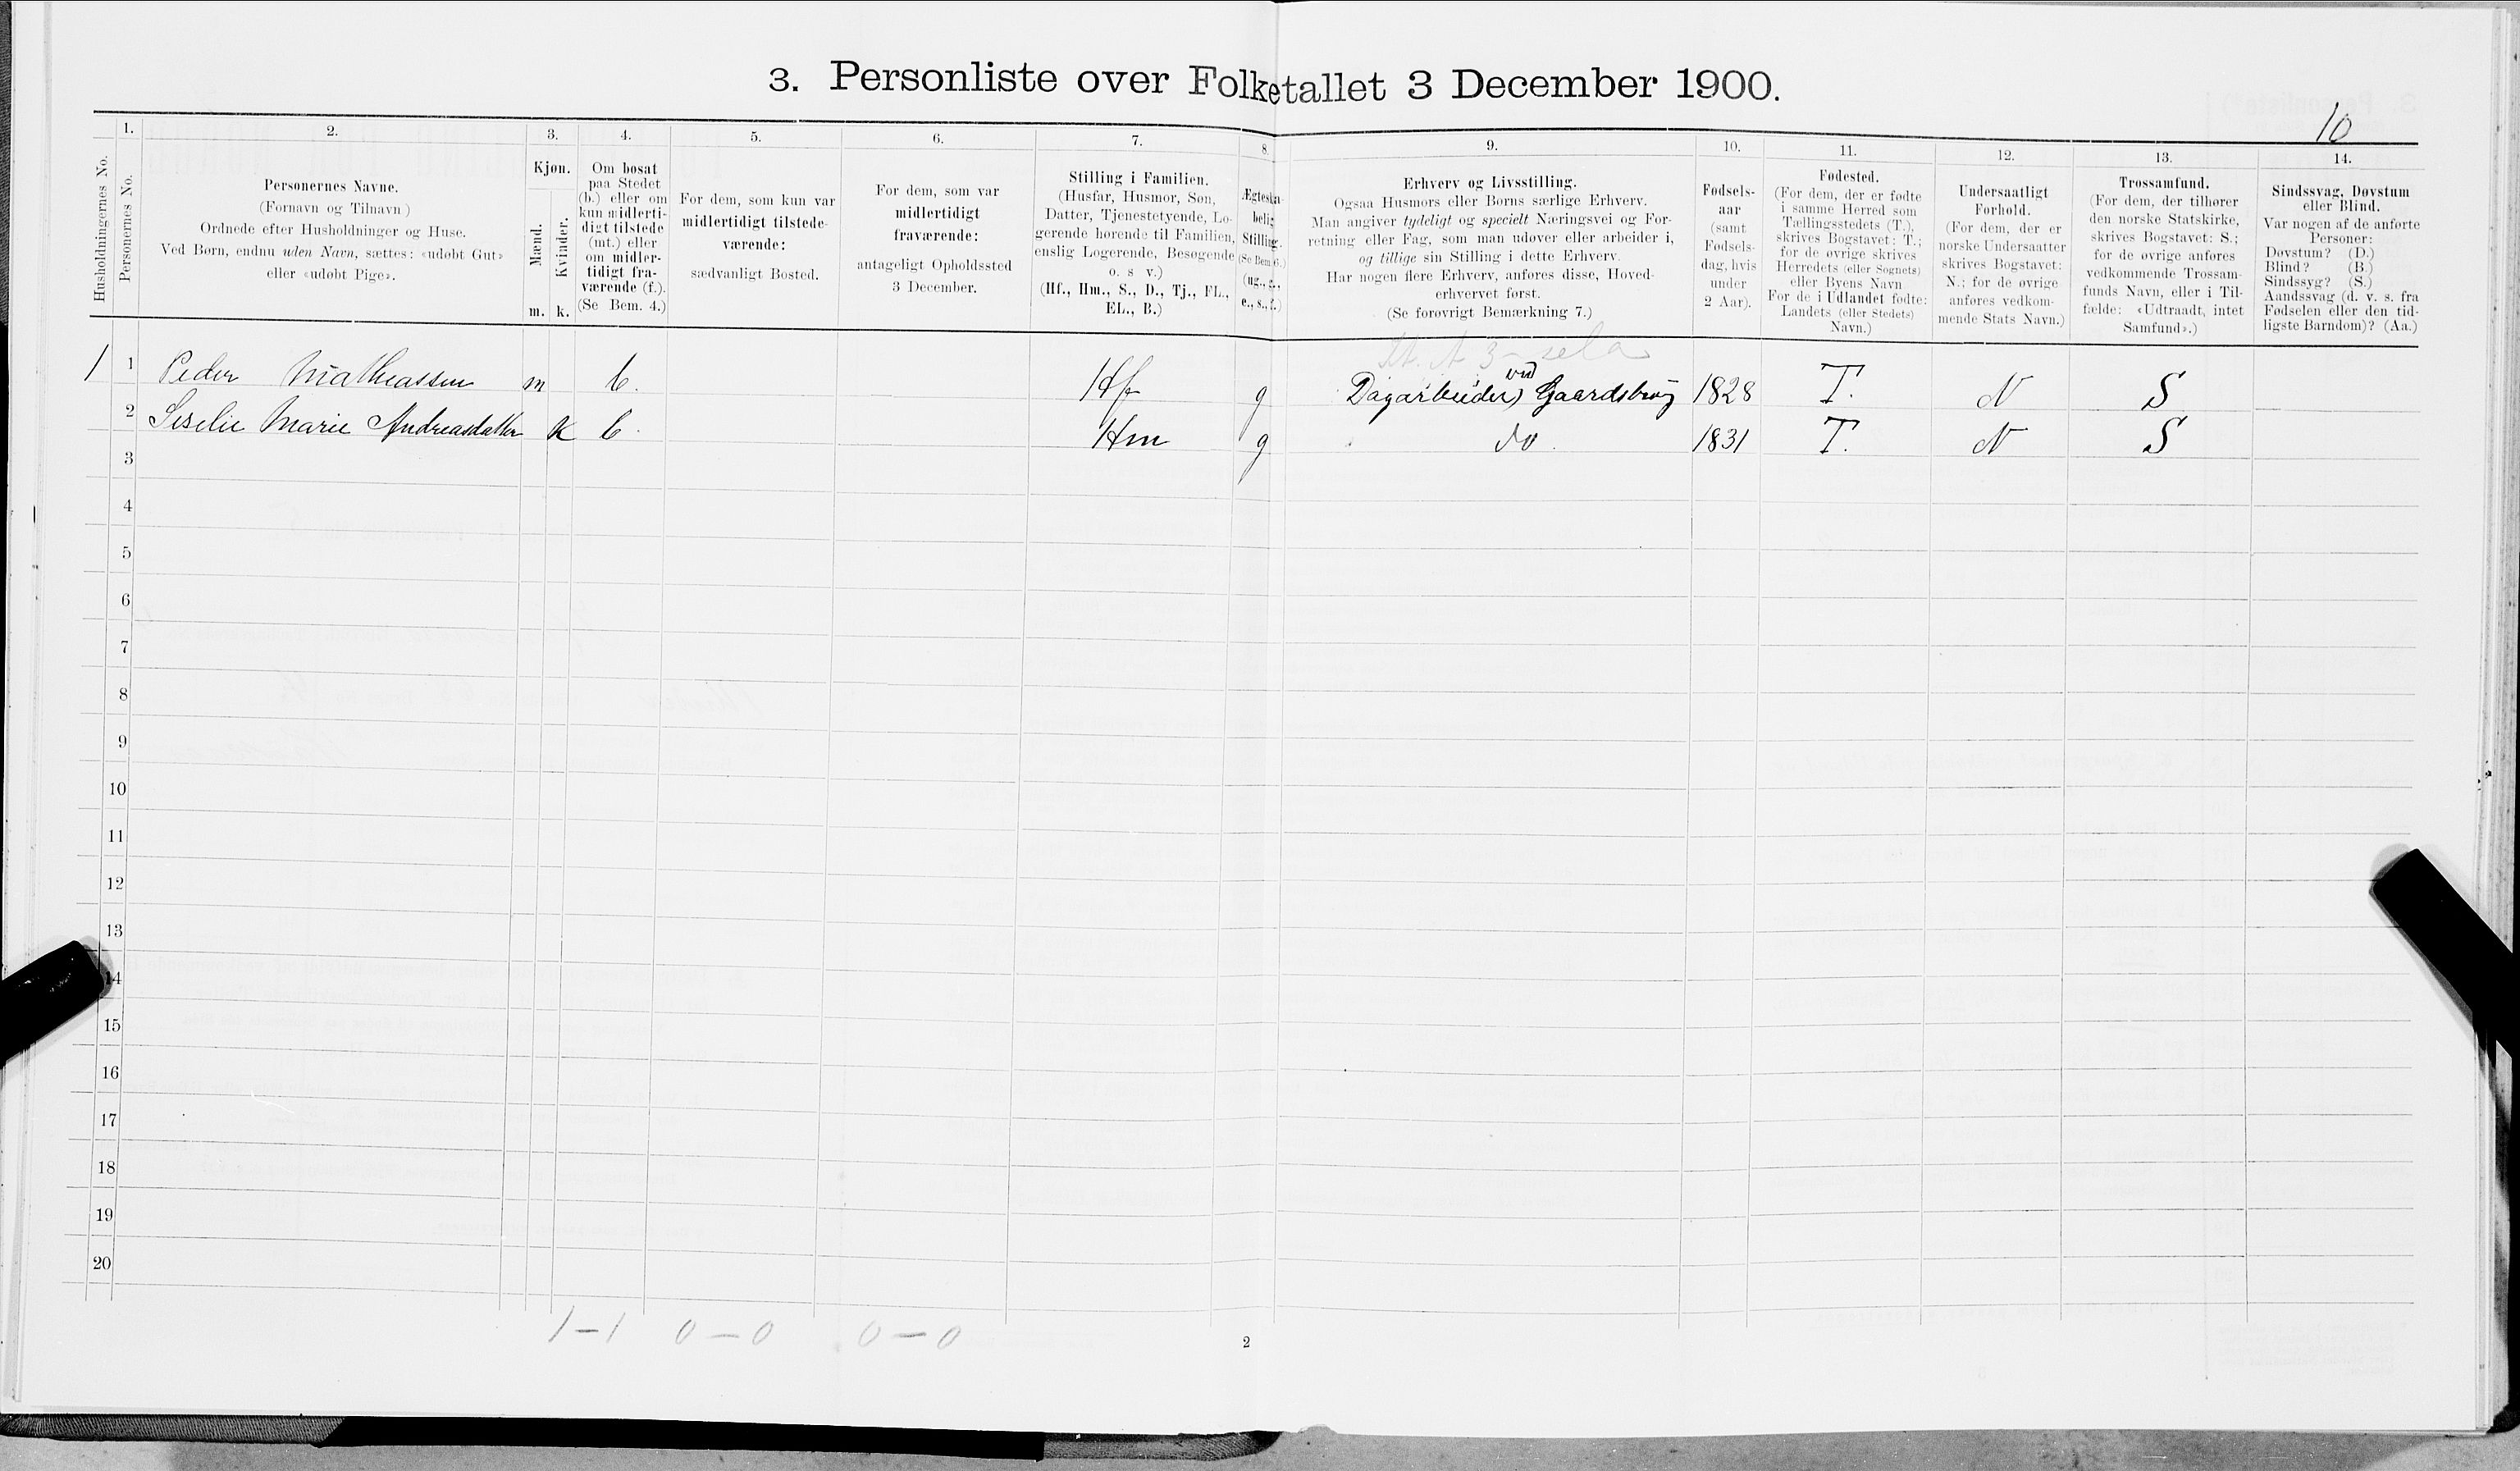 3. Personliste over Folketallet 3 December 1900.
10
Husholdningernes No.
1.
Personernes No.
2.
Personernes Navne.
(Fornavn og Tilnavn)
Ordnede efter Husholdninger og Huse.
Ved Børn, endnu uden Navn, sættes: «udøbt Gut»
eller «udøbt Pige».
3.
Kjøn.
Mænd.
Kvinder.
m. k.
4.
Om bosat
paa Stedet
(b.) eller om
kun midlerti-
digt tilstede
(mt.) eller
om midler-
tidigt fra-
værende (f.).
(Se Bem. 4.)
5.
For dem, som kun var
midlertidigt tilstede-
værende:
sædvanligt Bosted.
6.
For dem, som var
midlertidigt
fraværende:
antageligt Opholdssted
3 December.
7.
Stilling i Familien.
(Husfar, Husmor, Søn,
Datter, Tjenestetyende, Lo-
gerende hørende til Familien,
enslig Logerende, Besøgende
o. s v.)
(Hf., Hm., S., D., Tj., FL.,
EL., B.)
8.
Ægteska-
belig
Stilling.
(Se Bem. 6.)
(ug., g.,
e., s., f.)
9.
Erhverv og Livsstilling.
Ogsaa Husmors eller Børns særlige Erhverv.
Man angiver tydeligt og specielt Næringsvei og For-
retning eller Fag, som man udøver eller arbeider i,
og tillige sin Stilling i dette Erhverv.
Har nogen flere Erhverv, anføres disse, Hoved-
erhvervet først.
(Se forøvrigt Bemærkning 7.)
10.
Fødsels-
aar
(samt
Fødsels-
dag, hvis
under
2 Aar).
11.
Fødested.
(For dem, der er fødte
i samme Herred som
Tællingsstedets (T.),
skrives Bogstavet: T.;
for de øvrige skrives
Herredets (eller Sognets)
eller Byens Navn
For de i Udlandet fødte:
Landets (eller Stedets)
Navn.)
12.
Undersaatligt
Forhold.
(For dem, der er
norske Undersaatter
skrives Bogstavet:
N.; for de øvrige
anføres vedkom-
mende Stats Navn.)
13.
Trossamfund.
(For dem, der tilhører
den norske Statskirke,
skrives Bogstavet: S.;
for de øvrige anføres
vedkommende Trossam-
funds Navn, eller i Til-
fælde: «Udtraadt, intet
Samfund».)
14.
Sindssvag, Døvstum
eller Blind.
Var nogen af de anførte
Personer:
Døvstum? (D.)
Blind? (B.)
Sindssyg? (S.)
Aandssvag (d. v. s. fra
Fødselen eller den tid-
ligste Barndom)? (Aa.)
1 1 Peder Mathiassen m b. Hf g Dagarbeider ved Gaardsbrug 1828 T. N S
2 Siselie Marie Andreasdatter K b. Hm g do. 1831 T. N S
3
4
5
6
7
8
9
10
11
12
13
14
15
16
17
18
19
20
1-1 0-0 0-0
2